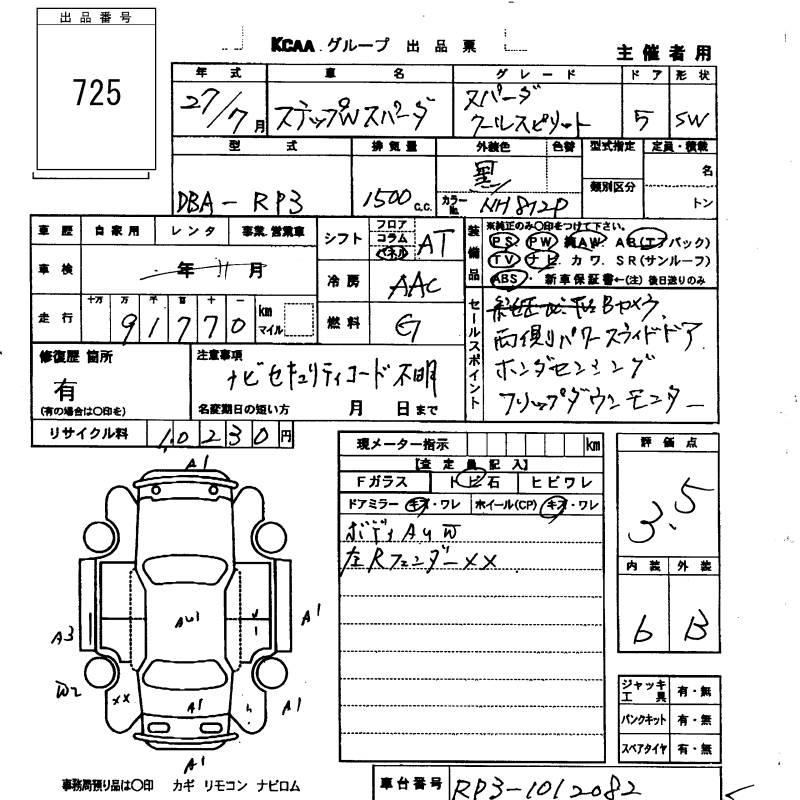 出品番号
725
KCAA グループ 出品票
主催者用
年式 車名 グレード ドア 形状
27/7月 ステップWスパーダ スパーダ クールスピリット 5 SW
型式 排気量 外装色 色替 型式指定 定員・積載
DBA-RP3 1500c.c. 黒 名
類別区分
カラーNo. NH812P トン
車歴 自家用 レンタ 事業.営業車
シフト フロア コラム パネル AT
車検 年 11月
冷房 AAC
走行 十万 万 千 百 十 一
91770 km マイル
燃料 G
装備品 ※純正のみ〇印をつけて下さい。
PS PW 純AW AB(エアバック)
TV ナビ カワ SR(サンルーフ)
ABS 新車保証書←(注)後日送りのみ
セールスポイント
Bカメラ
両側パワースライドドア
ホンダセンシング
フリップダウンモニター
修復歴 箇所
有
(有の場合は〇印を)
注意事項
ナビセキュリティコード不明
名変期日の短い方 月 日まで
リサイクル料 10230円
現メーター指示 km
【査定員記入】
Fガラス トビ石 ヒビワレ
ドアミラー キズ・ワレ ホイール(CP) キズ・ワレ
ボディAUW
左Rフェンダーxx
評価点
3.5
内装 外装
6 B
A1
A3
AU1
A1
W2
xx
A1
A1
A1
ジャッキ工具 有・無
パンクキット 有・無
スペアタイヤ 有・無
事務局預り品は〇印 カギ リモコン ナビロム
車台番号 RP3-1012082